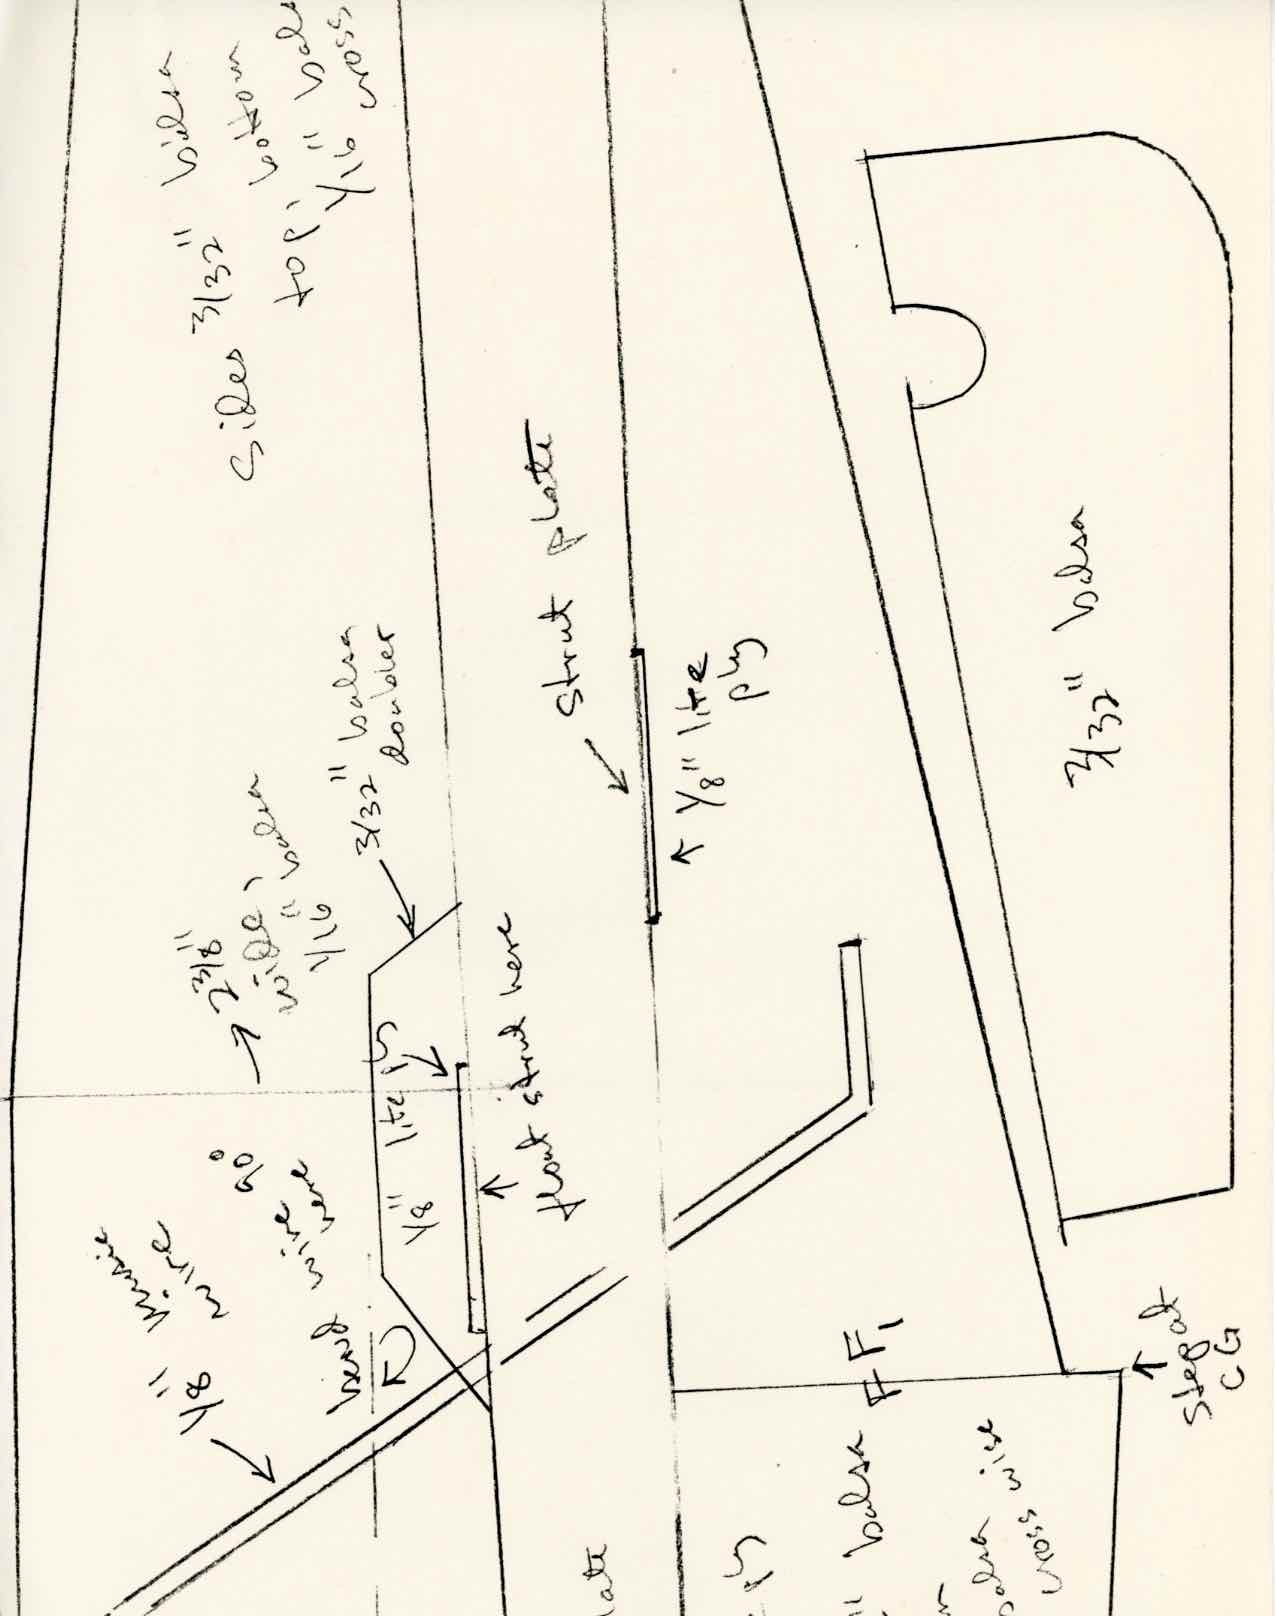 Sides 3/32" balsa
top, bottom
1/16" balsa
cross
2 3/8"
wide,
1/16" balsa
3/32" balsa
doubler
strut plate
1/8" lite
ply
3/32" balsa
1/8" music
wire
bend wire 90°
here
1/8" lite ply
float strut here
FF1
Step at
CG
late
ply
" balsa
balsa
cross wise